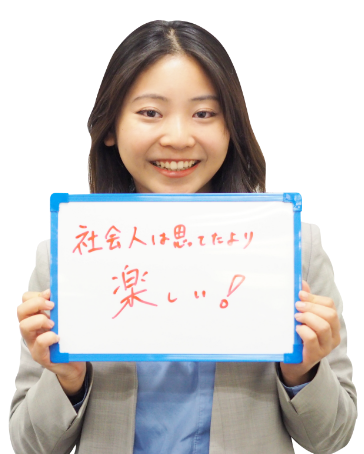 社会人は思てたより
楽しい!